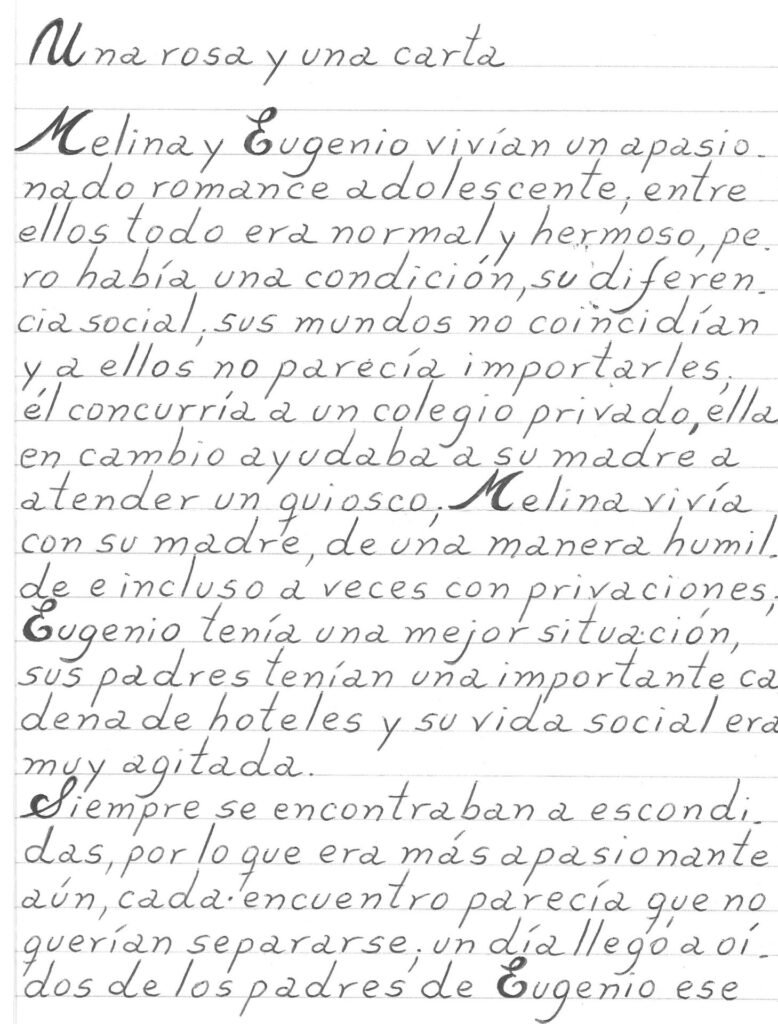 Una rosa y una carta
Melina y Eugenio vivían un apasio-
nado romance adolescente; entre
ellos todo era normal y hermoso, pe-
ro había una condición, su diferen-
cia social; sus mundos no coincidían
y a ellos no parecía importarles;
él concurría a un colegio privado, ella
en cambio ayudaba a su madre a
atender un quiosco; Melina vivía
con su madre, de una manera humil-
de e incluso a veces con privaciones;
Eugenio tenía una mejor situación,
sus padres tenían una importante ca
dena de hoteles y su vida social era
muy agitada.
Siempre se encontraban a escondi-
das, por lo que era más apasionante
aún, cada encuentro parecía que no
querían separarse; un día llegó a oí-
dos de los padres de Eugenio ese